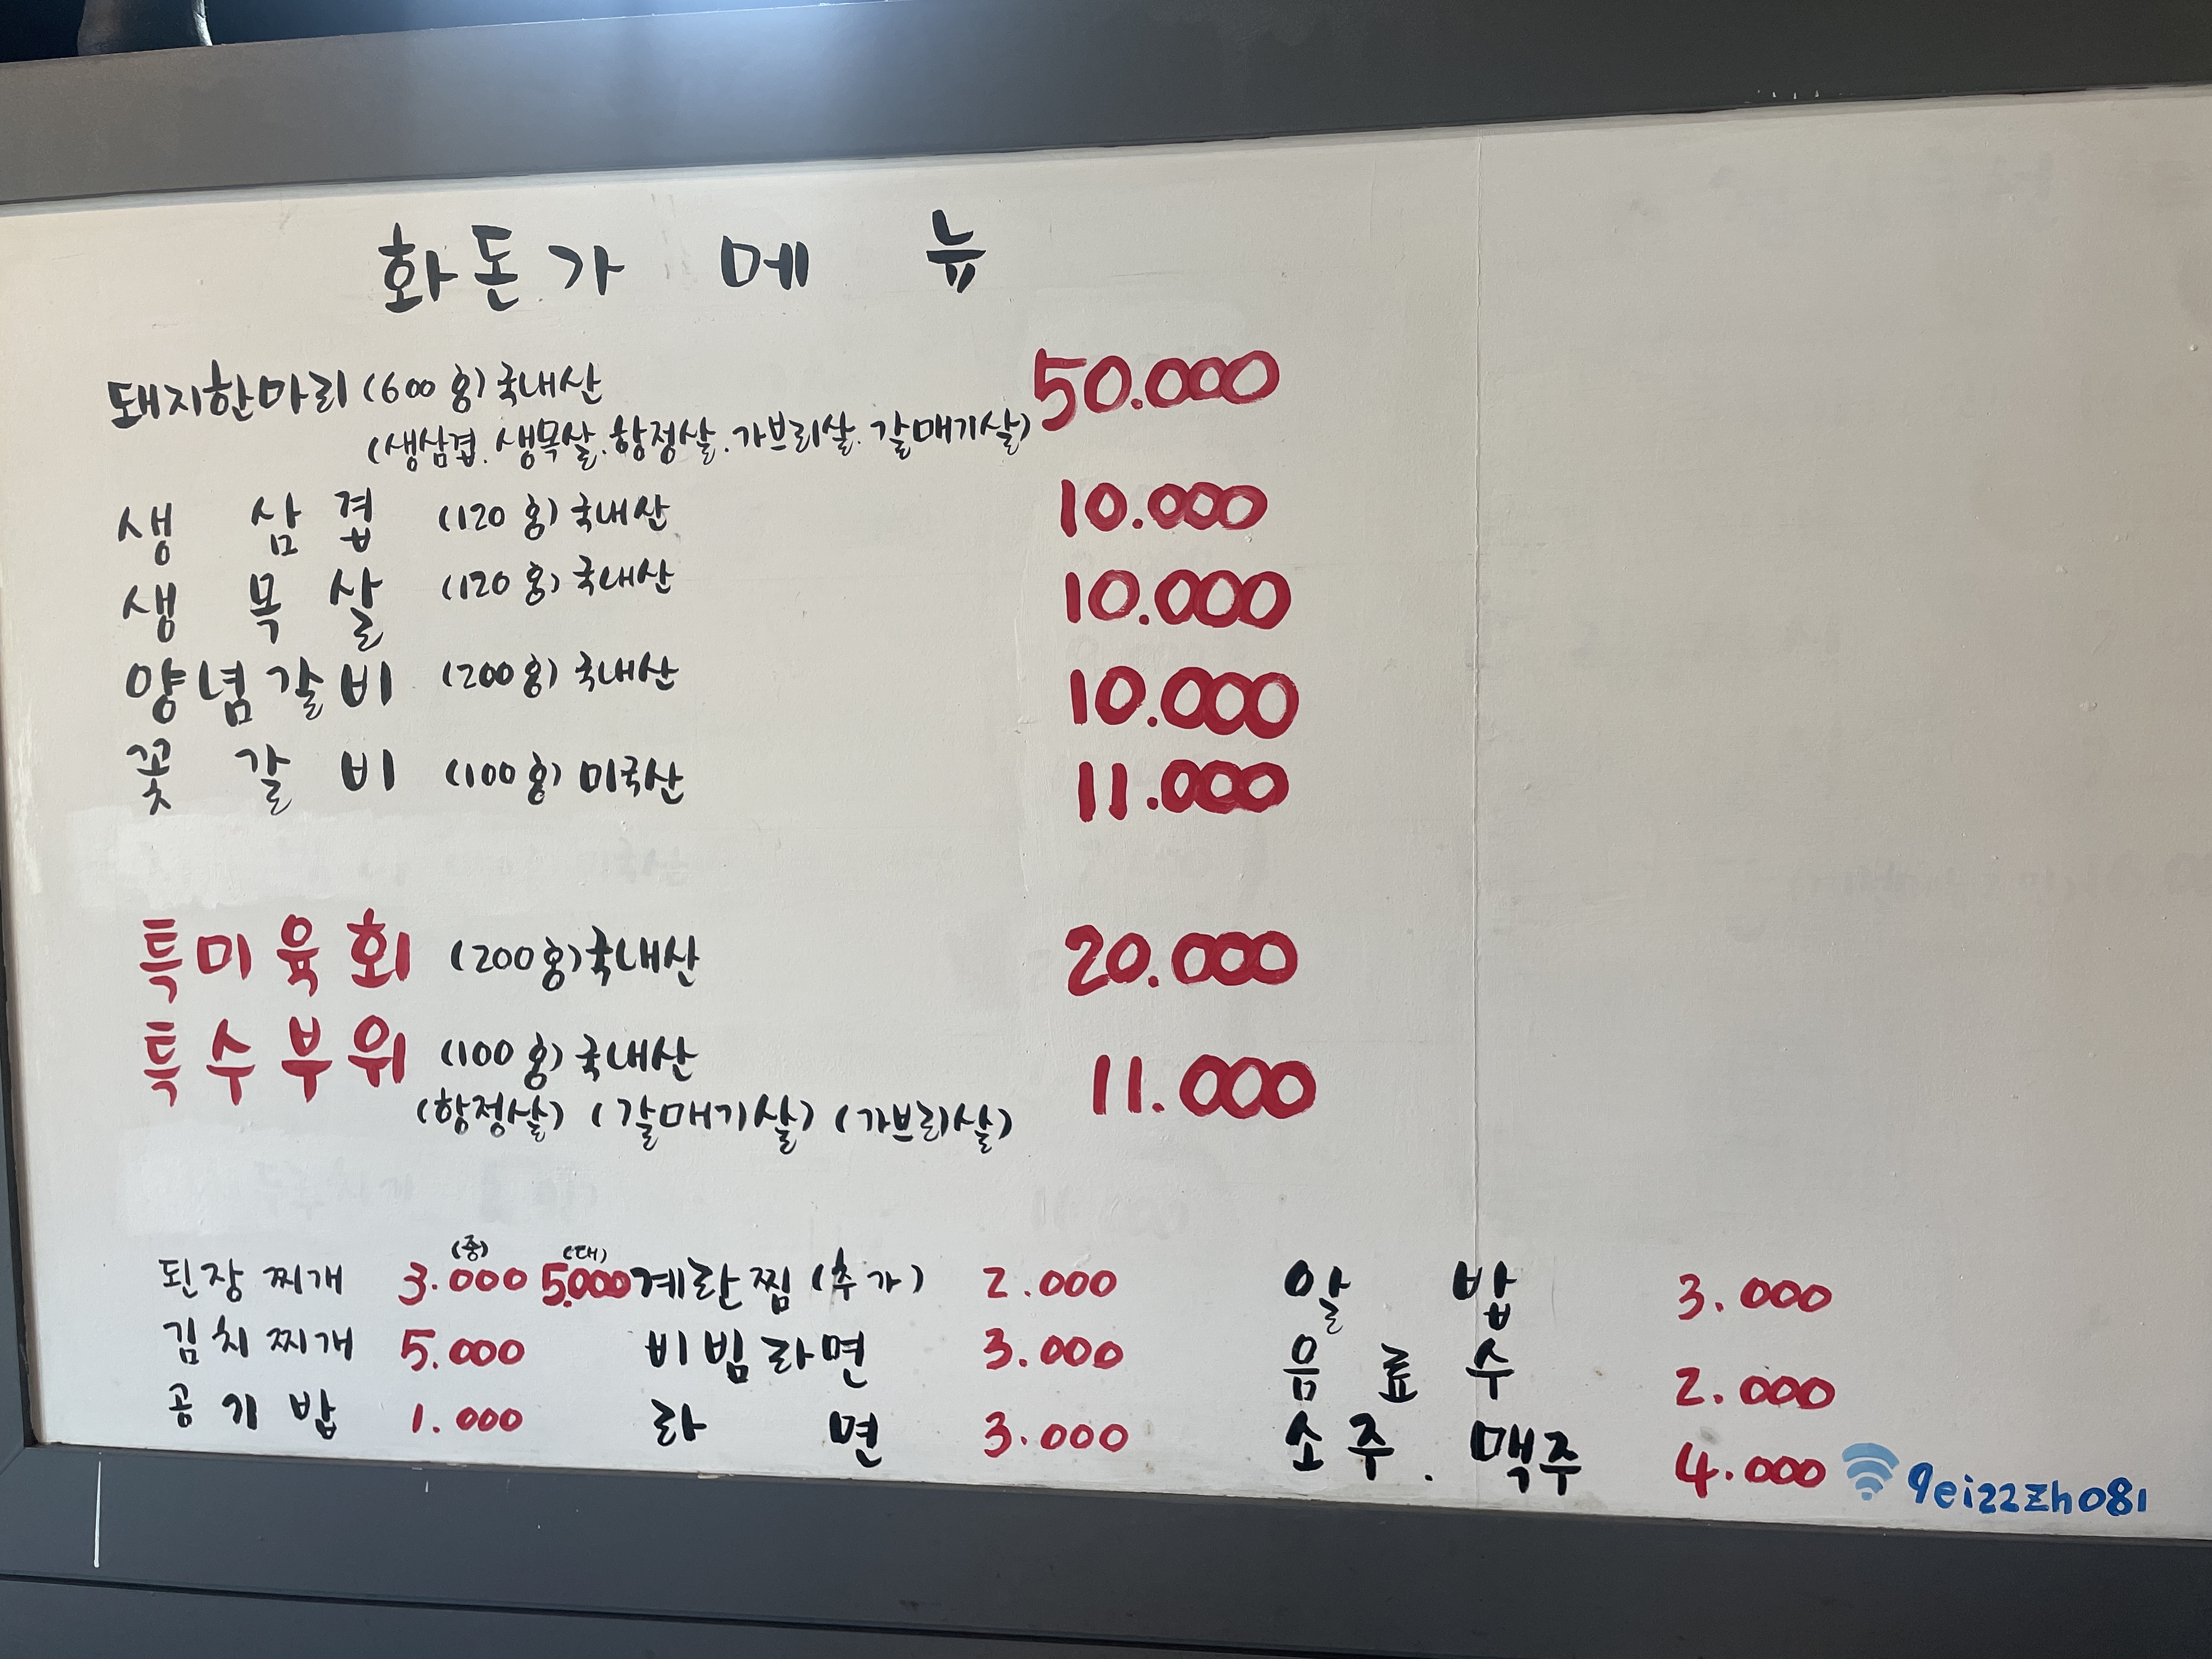 화돈가 메 뉴
돼지한마리 (600g) 국내산 50.000
(생삼겹. 생목살. 항정살. 가브리살. 갈매기살)
생 삼 겹 (120g) 국내산 10.000
생 목 살 (120g) 국내산 10.000
양념갈비 (200g) 국내산 10.000
꽃 갈 비 (100g) 미국산 11.000
특미육회 (200g) 국내산 20.000
특수부위 (100g) 국내산 11.000
(항정살) (갈매기살) (가브리살)
(중) (대)
된장찌개 3.000 5.000 계란찜 (추가) 2.000 알 밥 3.000
김치찌개 5.000 비빔라면 3.000 음 료 수 2.000
공 기 밥 1.000 라 면 3.000 소주. 맥주 4.000 qei22zh081